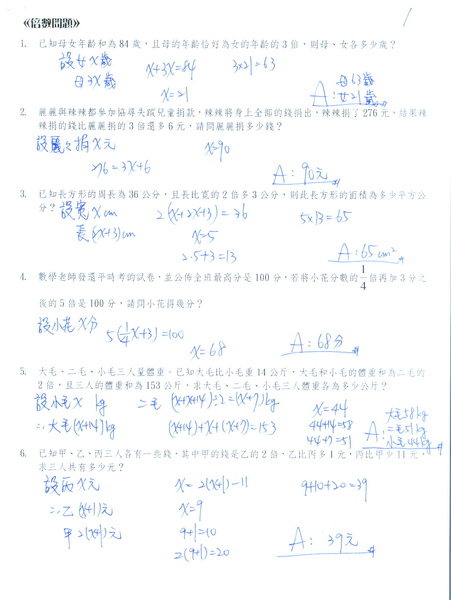 《倍數問題》
1
1. 已知母女年齡和為84歲，且母的年齡恰好為女的年齡的3倍，則母、女各多少歲？
設女X歲
母3X歲
X+3X=84
X=21
3×21=63
A：母63歲
女21歲
2. 麗麗與辣辣都參加協尋失蹤兒童捐款，辣辣將身上全部的錢捐出，辣辣捐了276元，結果辣
辣捐的錢比麗麗捐的3倍還多6元，請問麗麗捐多少錢？
設麗麗捐X元
276=3X+6
X=90
A：90元
3. 已知長方形的周長為36公分，且長比寬的2倍多3公分，則此長方形的面積為多少平方公
分？
設寬Xcm
長(2X+3)cm
2(X+2X+3)=36
X=5
2·5+3=13
5×13=65
A：65cm²
4. 數學老師發還平時考的試卷，並公佈全班最高分是100分，若將小花分數的1/4倍再加3分之
後的5倍是100分，請問小花得幾分？
設小花X分
5(1/4X+3)=100
X=68
A：68分
5. 大毛、二毛、小毛三人量體重。已知大毛比小毛重14公斤，大毛和小毛的體重和為二毛的
2倍，且三人的體重和為153公斤，求大毛、二毛、小毛三人體重各為多少公斤？
設小毛X kg
∴大毛(X+14)kg
二毛(X+X+14)÷2=(X+7)kg
(X+14)+X+(X+7)=153
X=44
44+14=58
44+7=51
A：大毛58kg
二毛51kg
小毛44kg
6. 已知甲、乙、丙三人各有一些錢，其中甲的錢是乙的2倍，乙比丙多1元，丙比甲少11元，
求三人共有多少元？
設丙X元
∴乙(X+1)元
甲2(X+1)元
X=2(X+1)-11
X=9
9+1=10
2(9+1)=20
9+10+20=39
A：39元